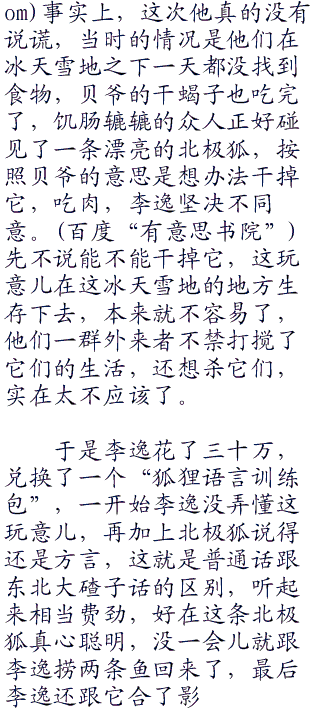 om)事实上，这次他真的没有
说谎，当时的情况是他们在
冰天雪地之下一天都没找到
食物，贝爷的干蝎子也吃完
了，饥肠辘辘的众人正好碰
见了一条漂亮的北极狐，按
照贝爷的意思是想办法干掉
它，吃肉，李逸坚决不同
意。(百度“有意思书院”)
先不说能不能干掉它，这玩
意儿在这冰天雪地的地方生
存下去，本来就不容易了，
他们一群外来者不禁打搅了
它们的生活，还想杀它们，
实在太不应该了。
于是李逸花了三十万，
兑换了一个“狐狸语言训练
包”，一开始李逸没弄懂这
玩意儿，再加上北极狐说得
还是方言，这就是普通话跟
东北大碴子话的区别，听起
来相当费劲，好在这条北极
狐真心聪明，没一会儿就跟
李逸捞两条鱼回来了，最后
李逸还跟它合了影